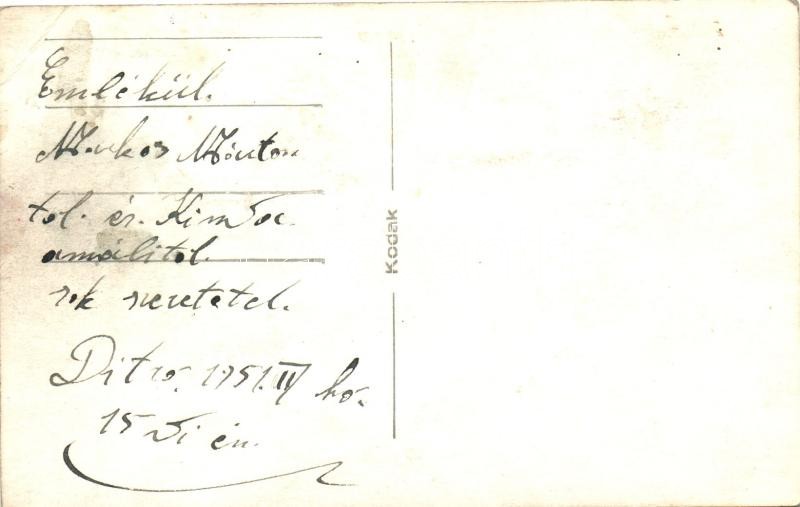 Emlékül.
Markos Márton
tol. és. Kimdoc.
amálitol.
sok szeretetel.
Ditro. 1951. IV hó.
15 di én.
Kodak